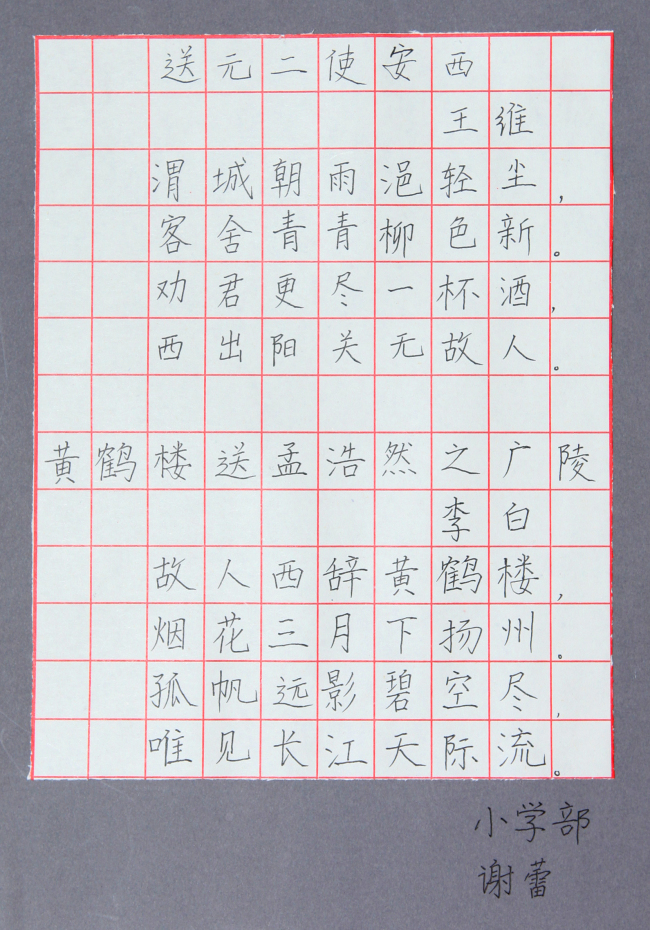 送元二使安西
王维
渭城朝雨浥轻尘，
客舍青青柳色新。
劝君更尽一杯酒，
西出阳关无故人。
黄鹤楼送孟浩然之广陵
李白
故人西辞黄鹤楼，
烟花三月下扬州。
孤帆远影碧空尽，
唯见长江天际流。
小学部
谢蕾